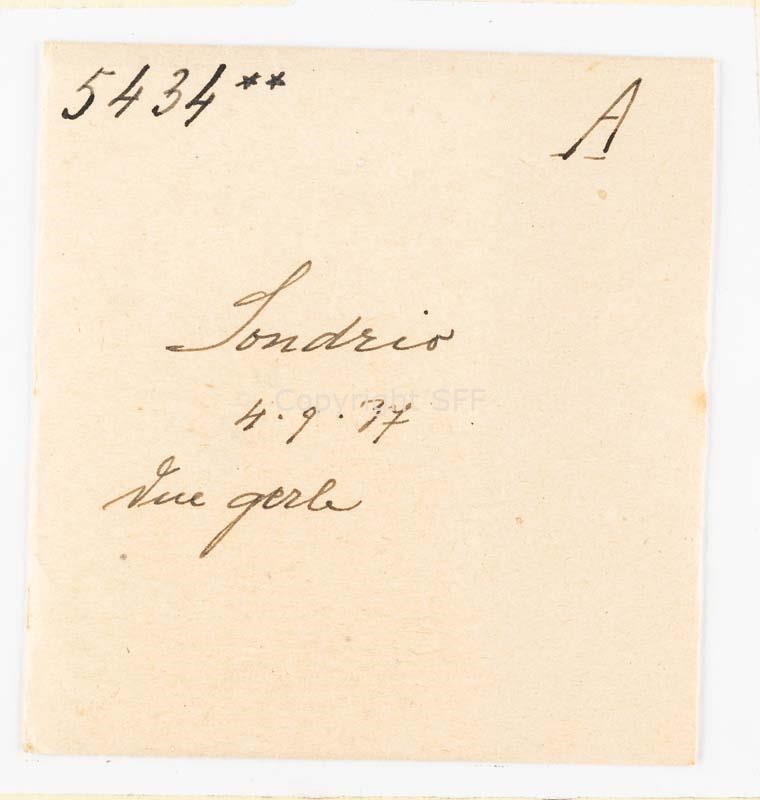 5434** A
Sondrio
© Copyright SFF
4.9.37
due gerle